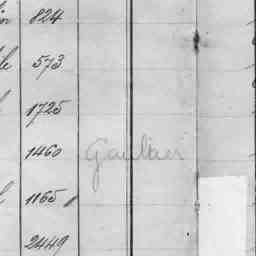 824
573
1725
1460 Gaultier
1165
2449